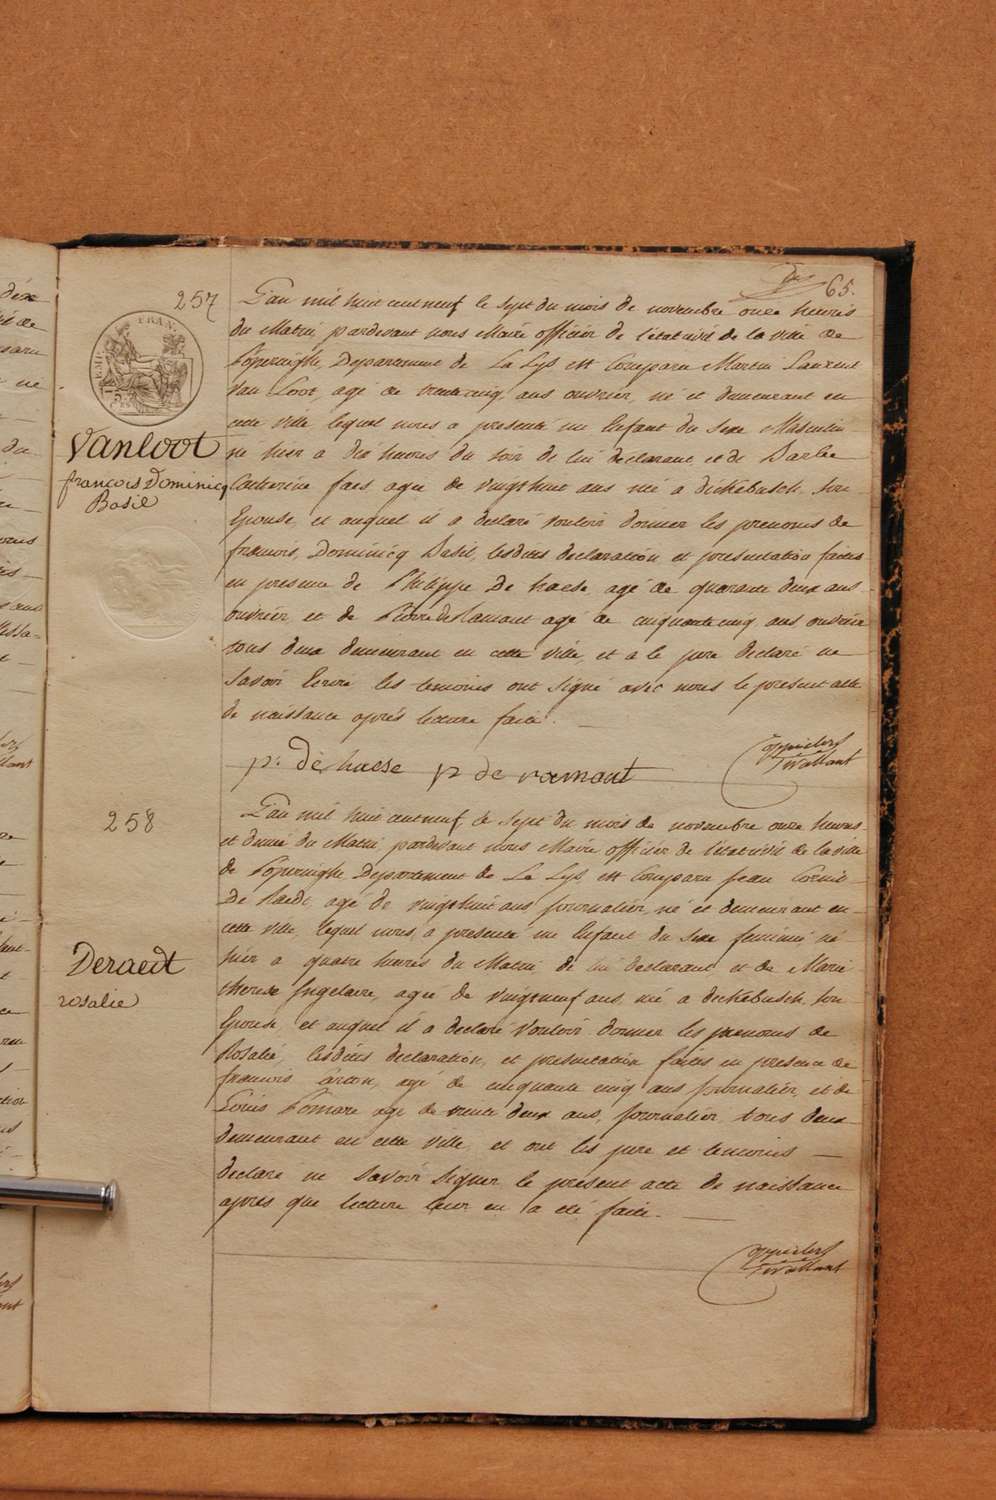 65.
257
L'an mil huit cent neuf le sept du mois de novembre onze heures
du Matin, pardevant nous Maire officier de l'etat civil de la ville de
Poperinghe, Departement de La Lys est Comparu Martin Laurent
Van Loot, agé de trente cinq ans ouvrier, né et demeurant en
cette ville, lequel nous a presenté un Enfant du Sexe Masculin
né hier à dix heures du soir de lui declarant et de Barbe
Catherine faes, agée de vingt huit ans née à dickebusch, son
Epouse, et auquel il a declaré vouloir donner les prenoms de
françois, Dominicq Basil, lesdites declaration et presentation faites
en presence de Philippe De haese, agé de quarante deux ans
ouvrier, et de Pierre de Ramout agé de cinquante cinq ans ouvrier
tous deux demeurant en cette ville, et a le pere declaré ne
Savoir Ecrire les temoins ont signé avec nous le present acte
de naissance après lecture faite.
Vanloot
françois Dominicq
Basil
EMP. FRAN.
p: de haese p de ramout
258
L'an mil huit cent neuf, le sept du mois de novembre onze heures
et demie du Matin, pardevant nous Maire officier de l'etat civil de la ville
de Poperinghe, Departement de La Lys, est Comparu Jean Cornil
De Raedt, agé de vingt huit ans journalier, né et demeurant en
cette ville, lequel nous a presenté un Enfant du Sexe feminin né
hier à quatre heures du Matin, de lui declarant et de Marie
therese Ingelaire, agée de vingt neuf ans, née à dickebusch, son
Epouse, et auquel il a declaré vouloir donner les prenoms de
Rosalie, lesdites declaration, et presentation faites en presence de
francois agé de cinquante cinq ans journalier, et de
Louis agé de trente deux ans, journalier, tous deux
demeurant en cette ville, et ont les pere et temoins
declaré ne savoir signer le present acte de naissance
après que lecture leur en a été faite.
Deraedt
rosalie